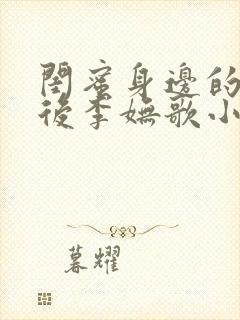 閨蜜身邊的
後李嫵歌小
暮耀